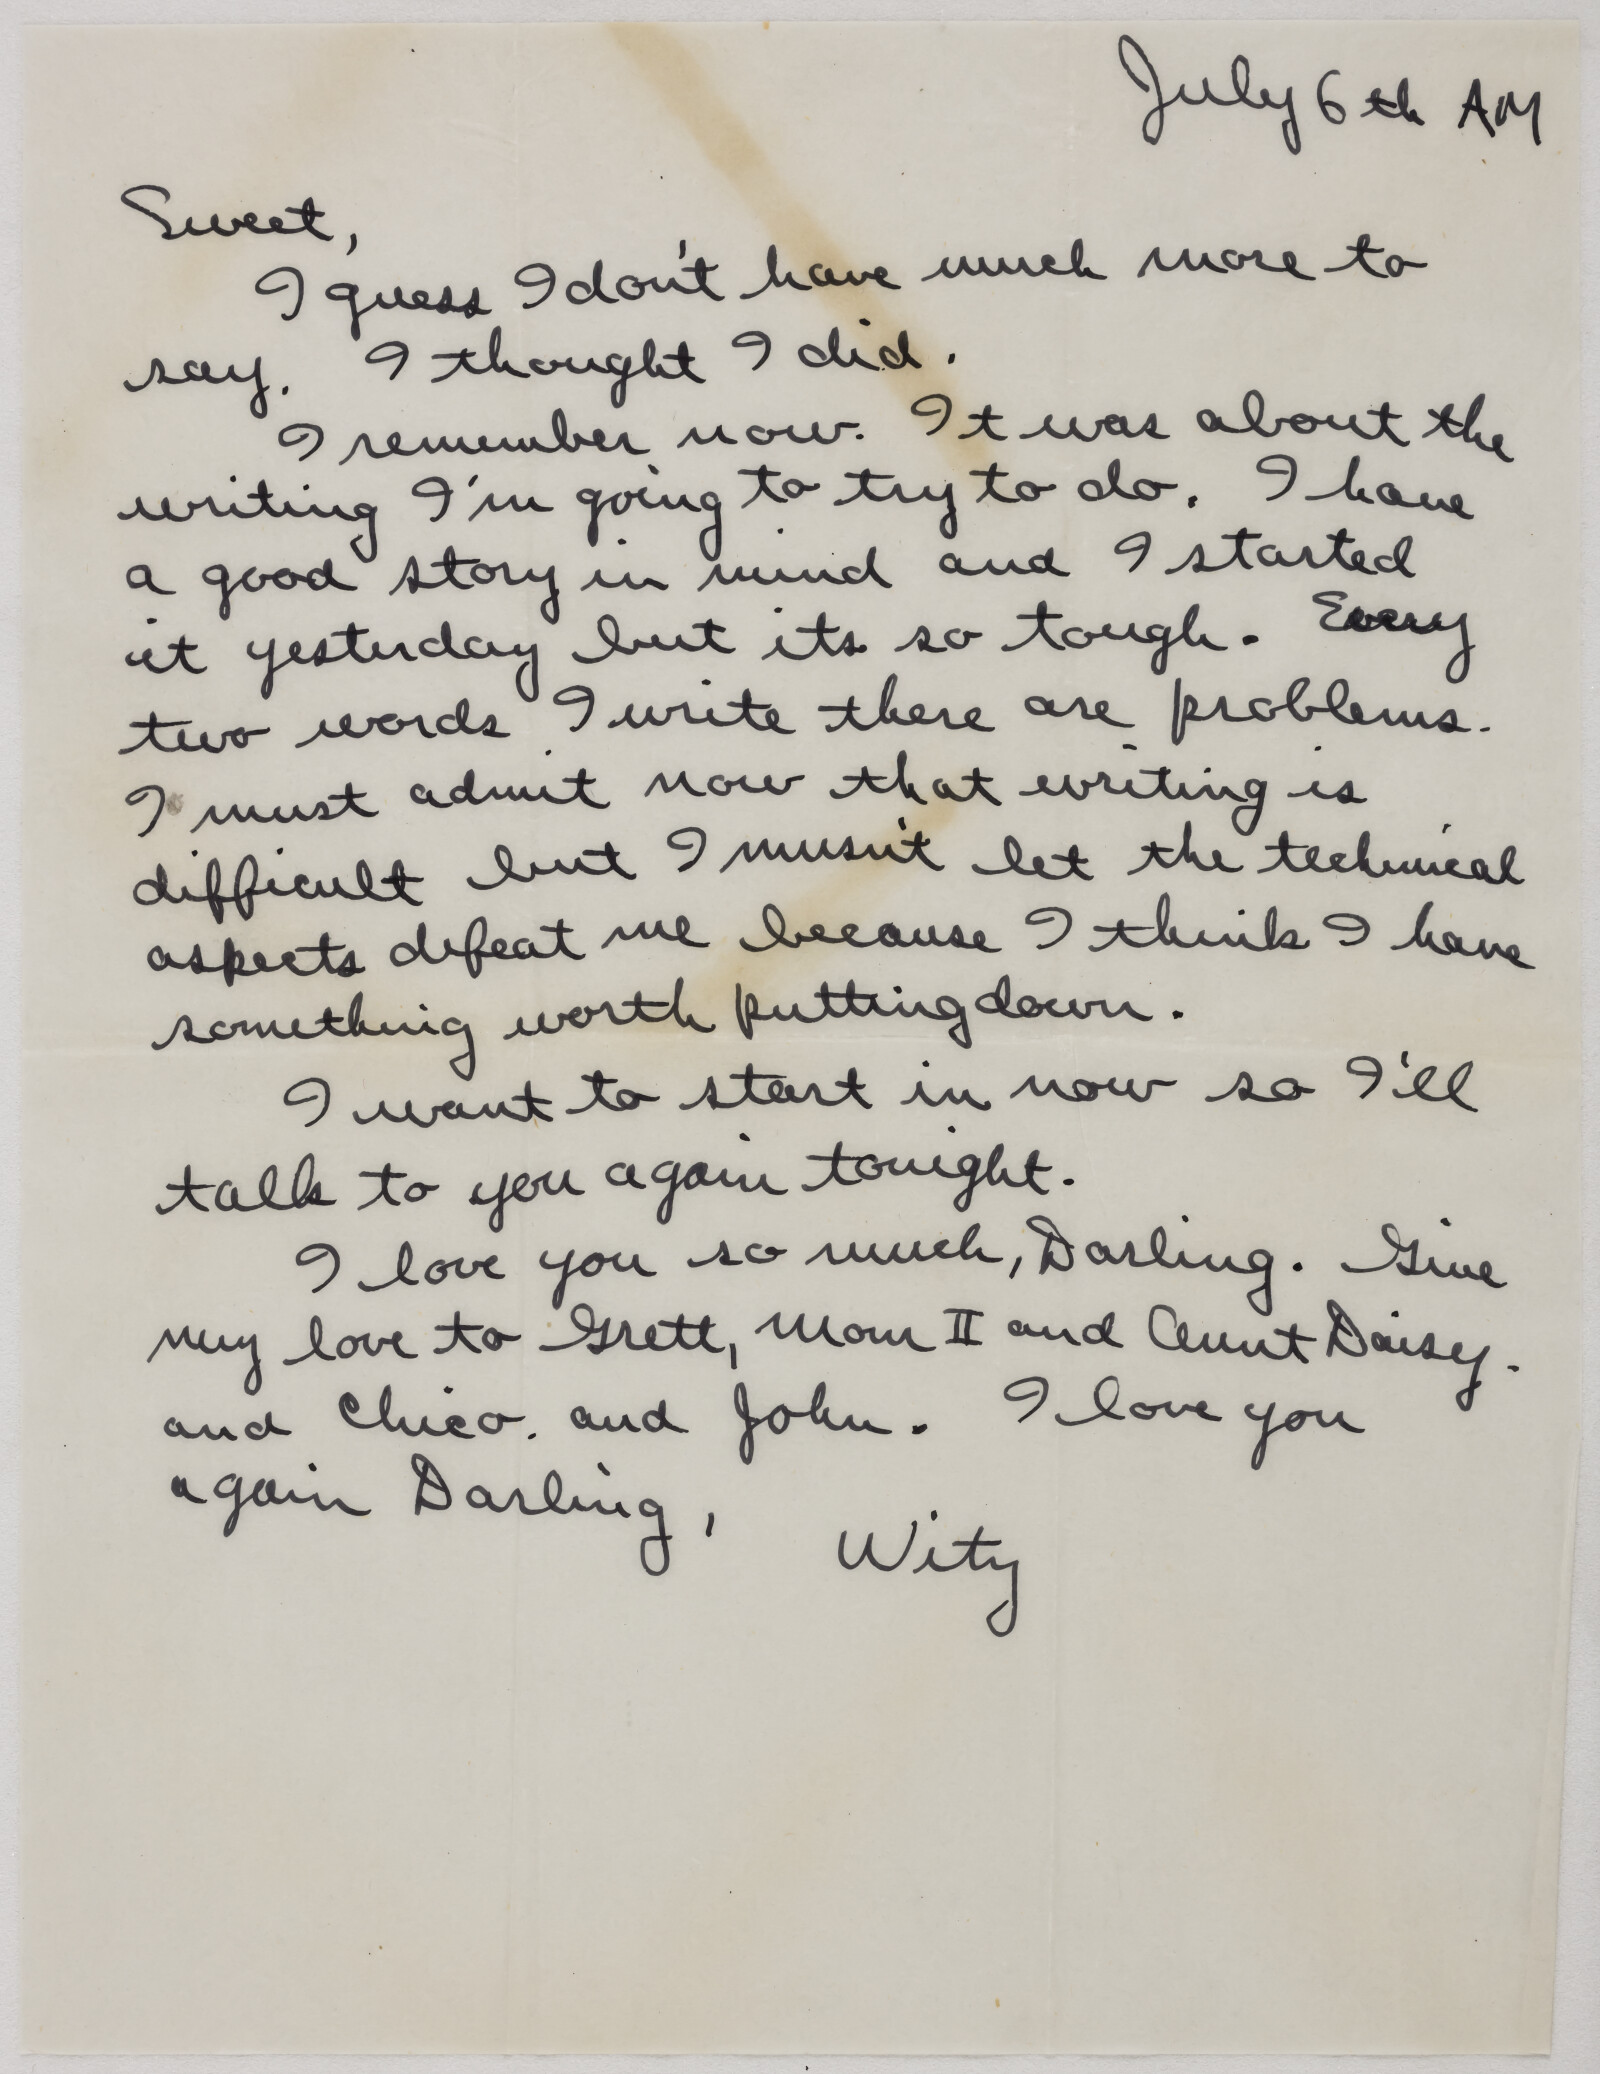 July 6th AM
Sweet,
I guess I don't have much more to
say. I thought I did.
I remember now. It was about the
writing I'm going to try to do. I have
a good story in mind and I started
it yesterday but its so tough. Every
two words I write there are problems.
I must admit now that writing is
difficult but I musn't let the technical
aspects defeat me because I think I have
something worth putting down.
I want to start in now so I'll
talk to you again tonight.
I love you so much, Darling. Give
my love to Grett, Mom II and Aunt Daisy.
and Chico. and John. I love you
again Darling,
Wity